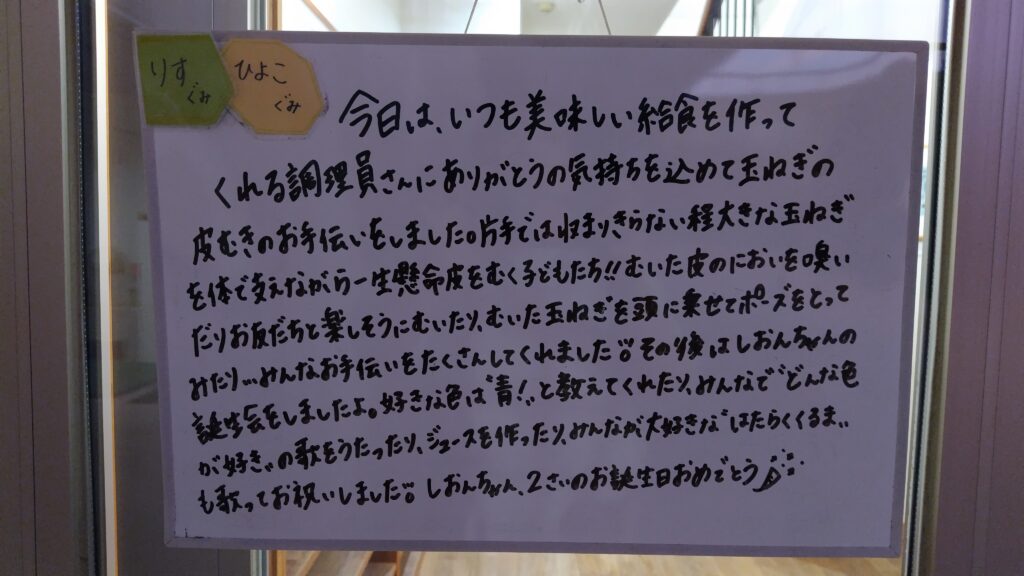 りすぐみ
ひよこぐみ
今日は、いつも美味しい給食を作って
くれる調理員さんにありがとうの気持ちを込めて玉ねぎの
皮むきのお手伝いをしました。片手では収まりきらない程大きな玉ねぎ
を体で支えながら一生懸命皮をむく子どもたち!!むいた皮のにおいを嗅い
だりお友だちと楽しそうにむいたり、むいた玉ねぎを頭に乗せてポーズをとって
みたり…みんなお手伝いをたくさんしてくれました。その後はしおんちゃんの
誕生会をしましたよ。好きな色は"青!"と教えてくれたり、みんなで"どんな色
が好き"の歌をうたったり、ジュースを作ったり、みんなが大好きな"はたらくくるま"
も歌ってお祝いしました。しおんちゃん、2さいのお誕生日おめでとう♪